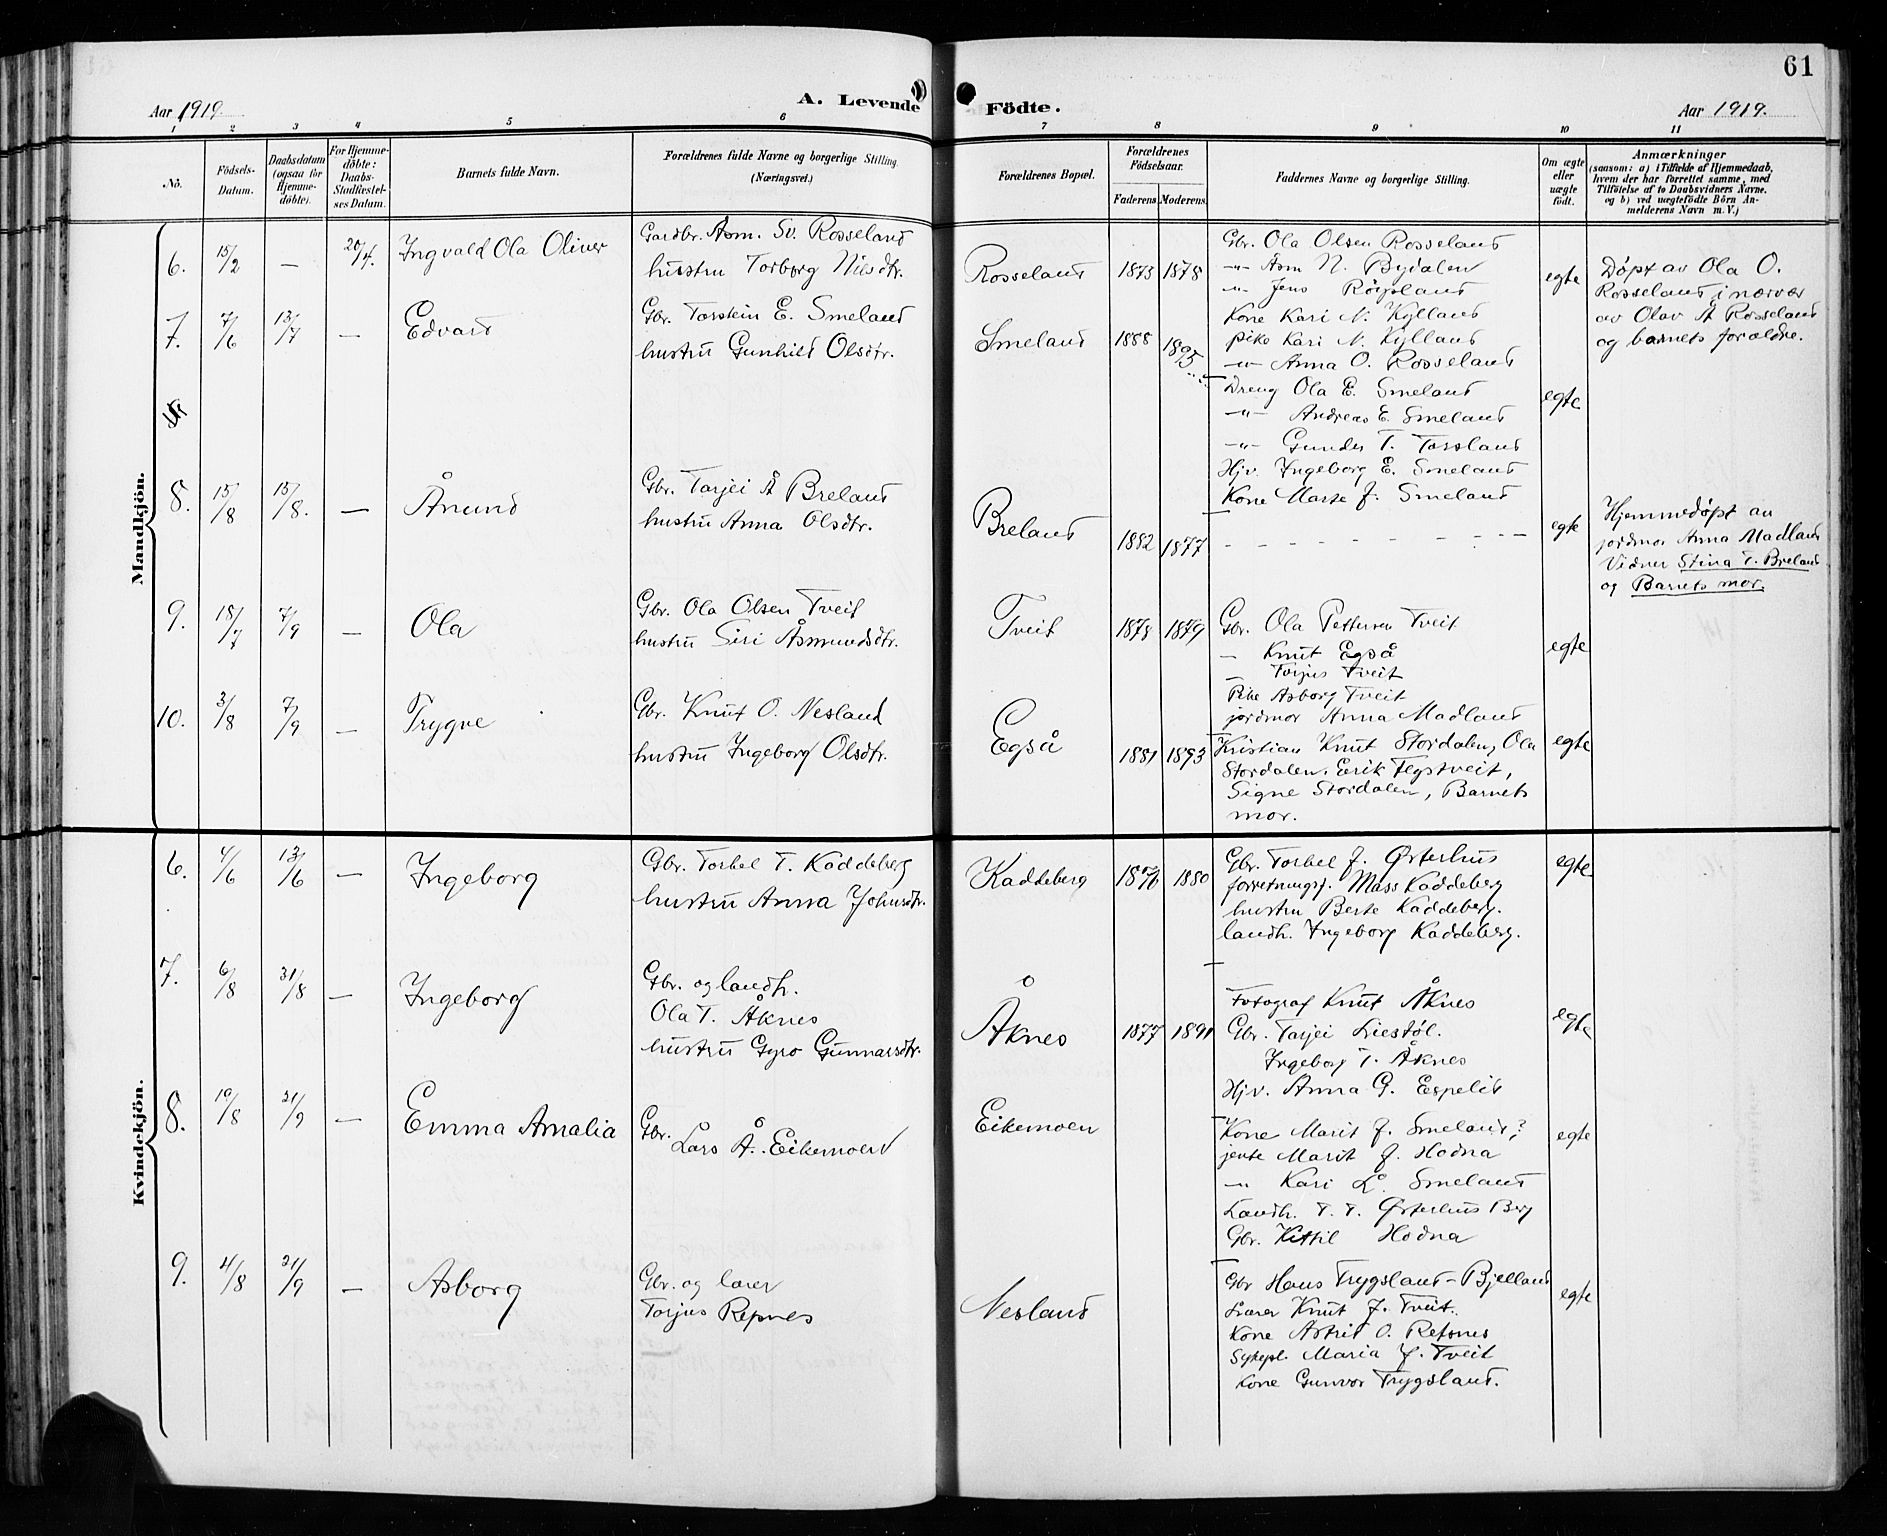 61
Aar 1919.
A. Levende Födte.
Aar 1919.
1 2 3 4 5 6 7 8 9 10 11
No.
Födsels-Datum.
Daabsdatum (ogsaa for Hjemme-döbte).
For Hjemme-döbte: Daabs-Stadfæstel-ses Datum.
Barnets fulde Navn.
Forældrenes fulde Navne og borgerlige Stilling. (Næringsvei.)
Forældrenes Bopæl.
Forældrenes Födselsaar.
Faderens Moderens.
Faddernes Navne og borgerlige Stilling.
Om ægte eller uægte födt.
Anmærkninger
(saasom: a) i Tilfælde af Hjemmedaab,
hvem der har forrettet samme, med
Tilföielse af to Daabsvidners Navne,
og b) ved uægtefödte Börn An-
melderens Navn m. V.)
Mandkjön.
6. 15/2 — 20/4. Ingvald Ola Oliver
Gardbr. Asm. Sv. Rosseland
hustru Torborg Nilsdtr.
Rosseland 1873 1878
Gbr. Ola Olsen Rosseland
-"- Asm N. Bydalen
-"- Jens Röysland
Kone Kari N. Kylland
pike Kari N. Kylland
-"- Anna O. Rosseland
egte
Döpt av Ola O.
Rosseland i nærvær
av Olav A Rosseland
og barnets forældre.
7. 7/6 13/7 — Edvard
Gbr. Torstein E. Smeland
hustru Gunhild Olsdtr.
Smeland 1888 1895
Dreng Ola E. Smeland
-"- Andreas E. Smeland
-"- Gunder T. Torsland
Hjv. Ingeborg E. Smeland
Kone Marte J. Smeland
egte
8. 15/8 15/8. — Ånund
Gbr. Tarjei Å Breland
hustru Anna Olsdtr.
Breland 1882 1877
- - - - - - - - - -
egte
Hjemmedöpt av
jordmor Anna Madland
Vidner Stina T. Breland
og Barnets mor.
9. 18/7 7/9 — Ola
Gbr. Ola Olsen Tveit
hustru Siri Åsmundsdtr.
Tveit 1878 1879
Gbr. Ola Pettersen Tveit
- Knut Egså
- Torjus Tveit
Pike Asborg Tveit
jordmor Anna Madland
egte
10. 3/8 7/9 — Trygve
Gbr. Knut O. Nesland
hustru Ingeborg Olsdtr.
Egså 1881 1893
Kristian Knut Stordalen, Ola
Stordalen, Eerik
Signe Stordalen, Barnets
mor.
egte
Kvindekjön.
6. 4/6 13/6 — Ingeborg
Gbr. Torbel T. Kaddeberg
hustru Anna Johnsdtr.
Kaddeberg 1876 1880
Gbr. Torbel J. Østerhus
forretningsf. Mass Kaddeberg
hustru Berte Kaddeberg.
landh. Ingeborg Kaddeberg.
egte
7. 6/8 31/8 — Ingeborg
Gbr. og landh.
Ola T. Åknes
hustru Gyro Gunnarsdtr.
Åknes 1877 1891
Fotograf Knut Åknes
Gbr. Tarjei Liestøl.
Ingeborg T. Åknes
Hjv. Anna G. Espelid
egte
8. 10/8 21/9 — Emma Amalia
Gbr.
Lars Å. Eikemoen
Eikemoen
Kone Marit J. Smeland?
jente Marit J. Hodna
-"- Kari L. Smeland
Landh. T. T. Østerhus Berg
Gbr. Kittil Hodna
egte
9. 4/8 21/9 — Asborg
Gbr. og lærer
Torjus Repnes
Nesland
Gbr Hans Trygsland-Bjelland
Lærer Knut J. Tveit.
Kone Astrid O. Refsnes
Sykepl. Maria J. Tveit
Kone Gunvor Trygsland.
egte